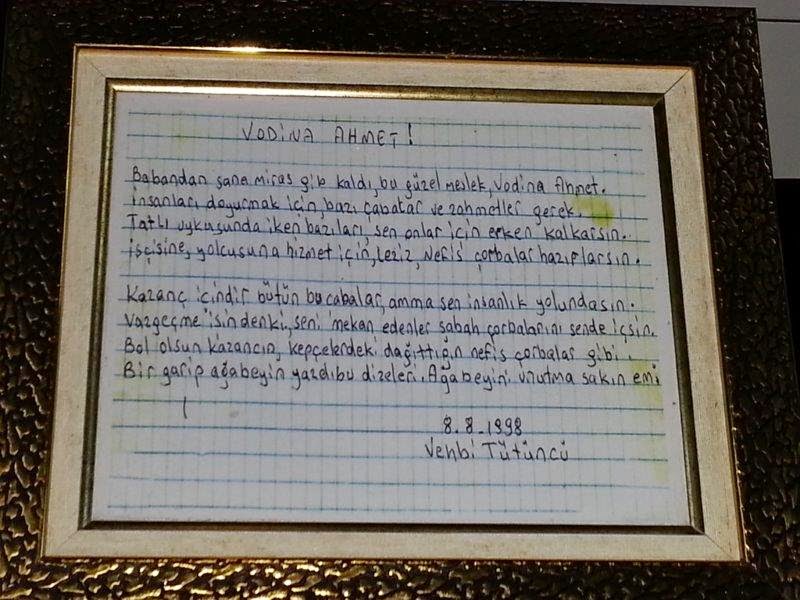 VODİNA AHMET!
Babandan sana miras gib kaldı, bu güzel meslek, Vodina Ahmet.
İnsanları doyurmak için, bazı çabalar ve zahmetler gerek.
Tatlı uykusunda iken bazıları, sen onlar için erken kalkarsın.
İşçisine, yolcusuna hizmet için, Leziz, Nefis çorbalar hazıplarsın.
Kazanç içindir bütün bu cabalar, amma sen insanlık yolundasın.
Vazgeçme işindenki, seni mekan edenler sabah çorbalarını sende içsin.
Bol olsun kazancın, kepçelerdeki dağıttığın nefis çorbalar gibi.
Bir garip ağabeyin yazdıbu dizeleri. Ağabeyini unutma sakın emi
8.8.1998
Vehbi Tütüncü